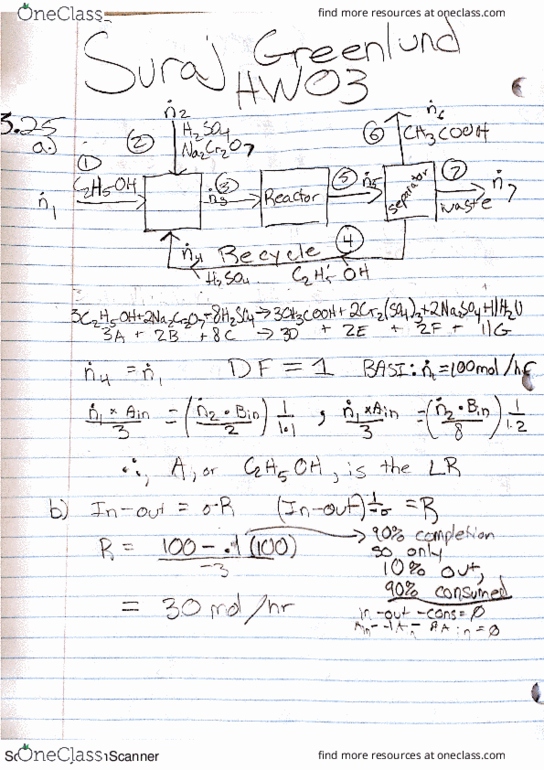 OneClass
find more resources at oneclass.com
Suraj Greenlund
HW03
3.25
a.)
ṅ2
②
H2SO4
Na2Cr2O7
ṅ6
⑥
CH3COOH
①
C2H5OH
ṅ1
③
ṅ3
Reactor
⑤
ṅ5
Separator
⑦
ṅ7
waste
ṅ4
Recycle
④
H2SO4
C2H5OH
3C2H5OH+2Na2Cr2O7+8H2SO4→3CH3COOH+2Cr2(SO4)3+2Na2SO4+11H2O
3A + 2B + 8C → 3D + 2E + 2F + 11G
ṅ4 = ṅ1 DF = 1 BASI: ṅ1=100mol/hr
ṅ1 × Ain / 3 = (ṅ2 · Bin / 2) 1/1.1 , ṅ1 × Ain / 3 = (ṅ2 · Bin / 8) 1/1.2
∴, A, or C2H5OH, is the LR
b) In-out = σR (In-out) 1/-σ = R
R = 100 - .1(100) / -3
→ 90% completion
so only
10% out,
90% consumed
= 30 mol/hr
in-out-cons=∅
OneClass
Scanner
find more resources at oneclass.com